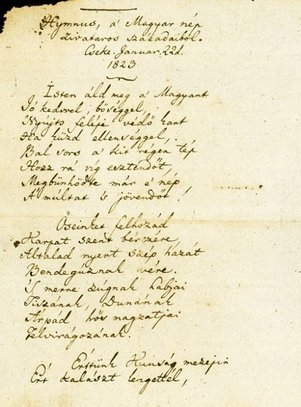 Hymnus, a' Magyar nép
zivataros századaiból.
Cseke. Januar. 22d.
1823
Isten áld meg a Magyart
Jó kedvvel, bőséggel,
Nyújts feléje védő kart
Ha küzd ellenséggel,
Bal sors a' kit régen tép
Hozz rá víg esztendőt,
Megbűnhödte már e' nép
A' múltat 's jövendőt!
Őseinket felhozád
Kárpát szent bérczére,
Általad nyert szép hazát
Bendegúznak vére.
'S merre zúgnak habjai
Tiszának, Dunának
Árpád hős magzatjai
Felvirágozának.
Értünk Kunság mezein
Ért kalászt lengettél,